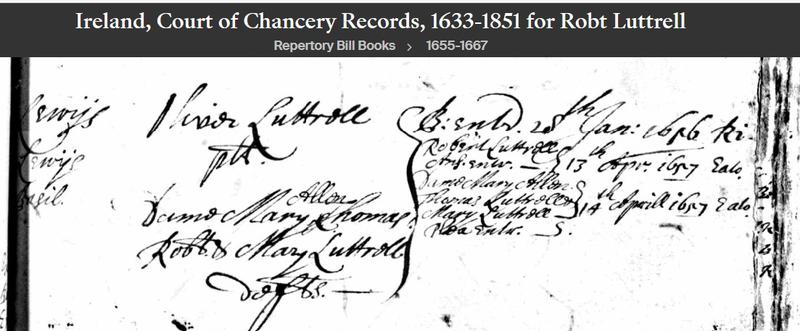 Ireland, Court of Chancery Records, 1633-1851 for Robt Luttrell
Repertory Bill Books > 1655-1667
Lewijs
Lewijs
Basil.
Oliver Luttrell
plt.
Dame Mary Allen Thomas,
Robt & Mary Luttrell
defts.
B: entr. 28th Jan: 1656
Robert Luttrell
Ans. entr. 13th Apr. 1657 Ealo
Dame Mary Allen
Thomas Luttrell
Mary Luttrell 14th Aprill 1657 Ealo
entr.